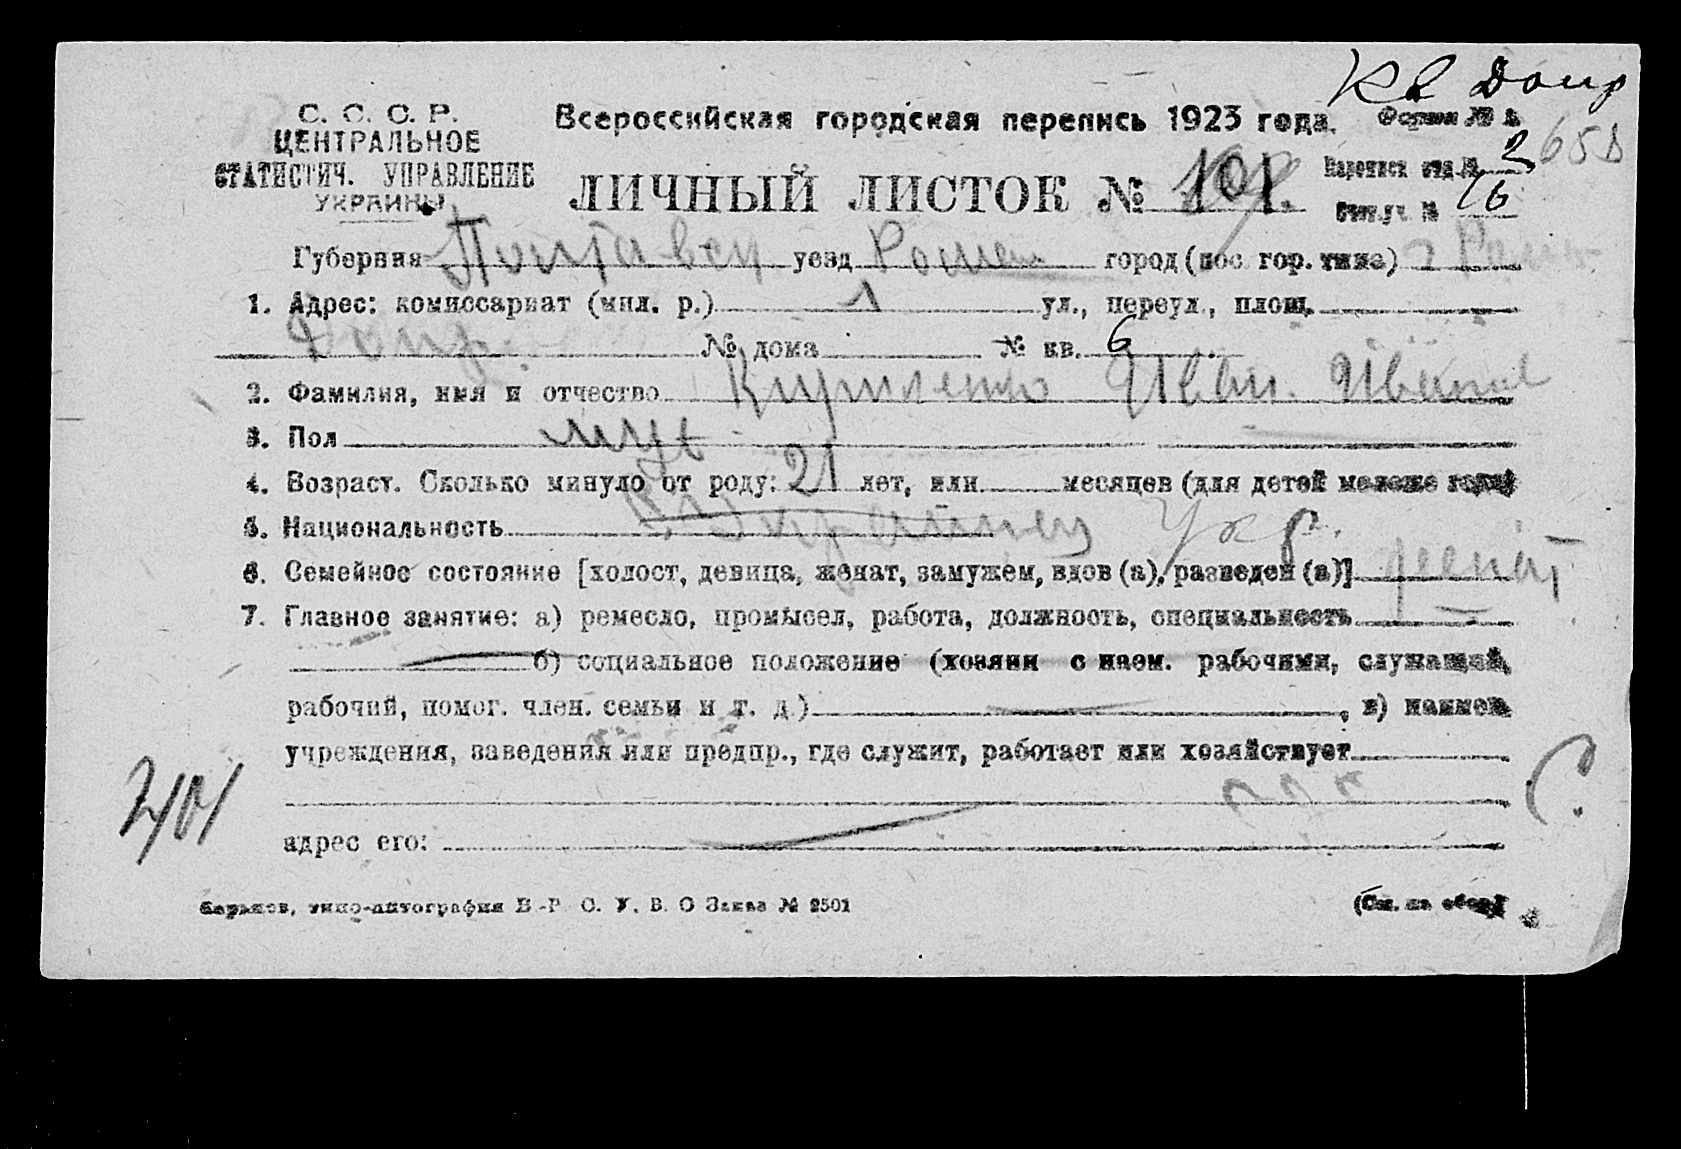 КВ Допр
С. С. С. Р.
ЦЕНТРАЛЬНОЕ
СТАТИСТИЧ. УПРАВЛЕНИЕ
УКРАИНЫ
Всероссийская городская перепись 1923 года.
Форма № 2
658
ЛИЧНЫЙ ЛИСТОК № 101.
Перепися отд. № 2
Счет.уч. № 16
Губерния Полтавск уезд Ромен город (пос. гор. типа) г Ромн
1. Адрес: комиссариат (мил. р.) 1 ул., переул., площ.
Допр. № дома № кв. 6
2. Фамилия, имя и отчество Иван. Иванов
3. Пол муж
4. Возраст. Сколько минуло от роду: 21 лет, или месяцев (для детей моложе года)
5. Национальность Украинец Укр.
6. Семейное состояние [холост, девица, женат, замужем, вдов (а), разведен (а)] женат
7. Главное занятие: а) ремесло, промысел, работа, должность, специальность
б) социальное положение (хозяин с наем. рабочими, служащий,
рабочий, помог. член. семьи и т. д.) , в) наимен.
учреждения, заведения или предпр., где служит, работает или хозяйствует
адрес его:
Харьков, типо-литография В.-Р. С. У. В. О Заказ № 2501
(См. на обор.)